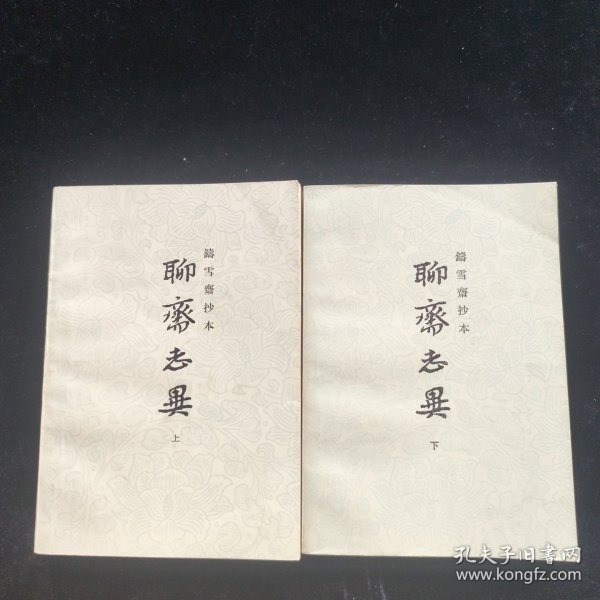 鑄雪齋抄本
聊齋志異
上
鑄雪齋抄本
聊齋志異
下
孔夫子旧书网
www.kongfz.com